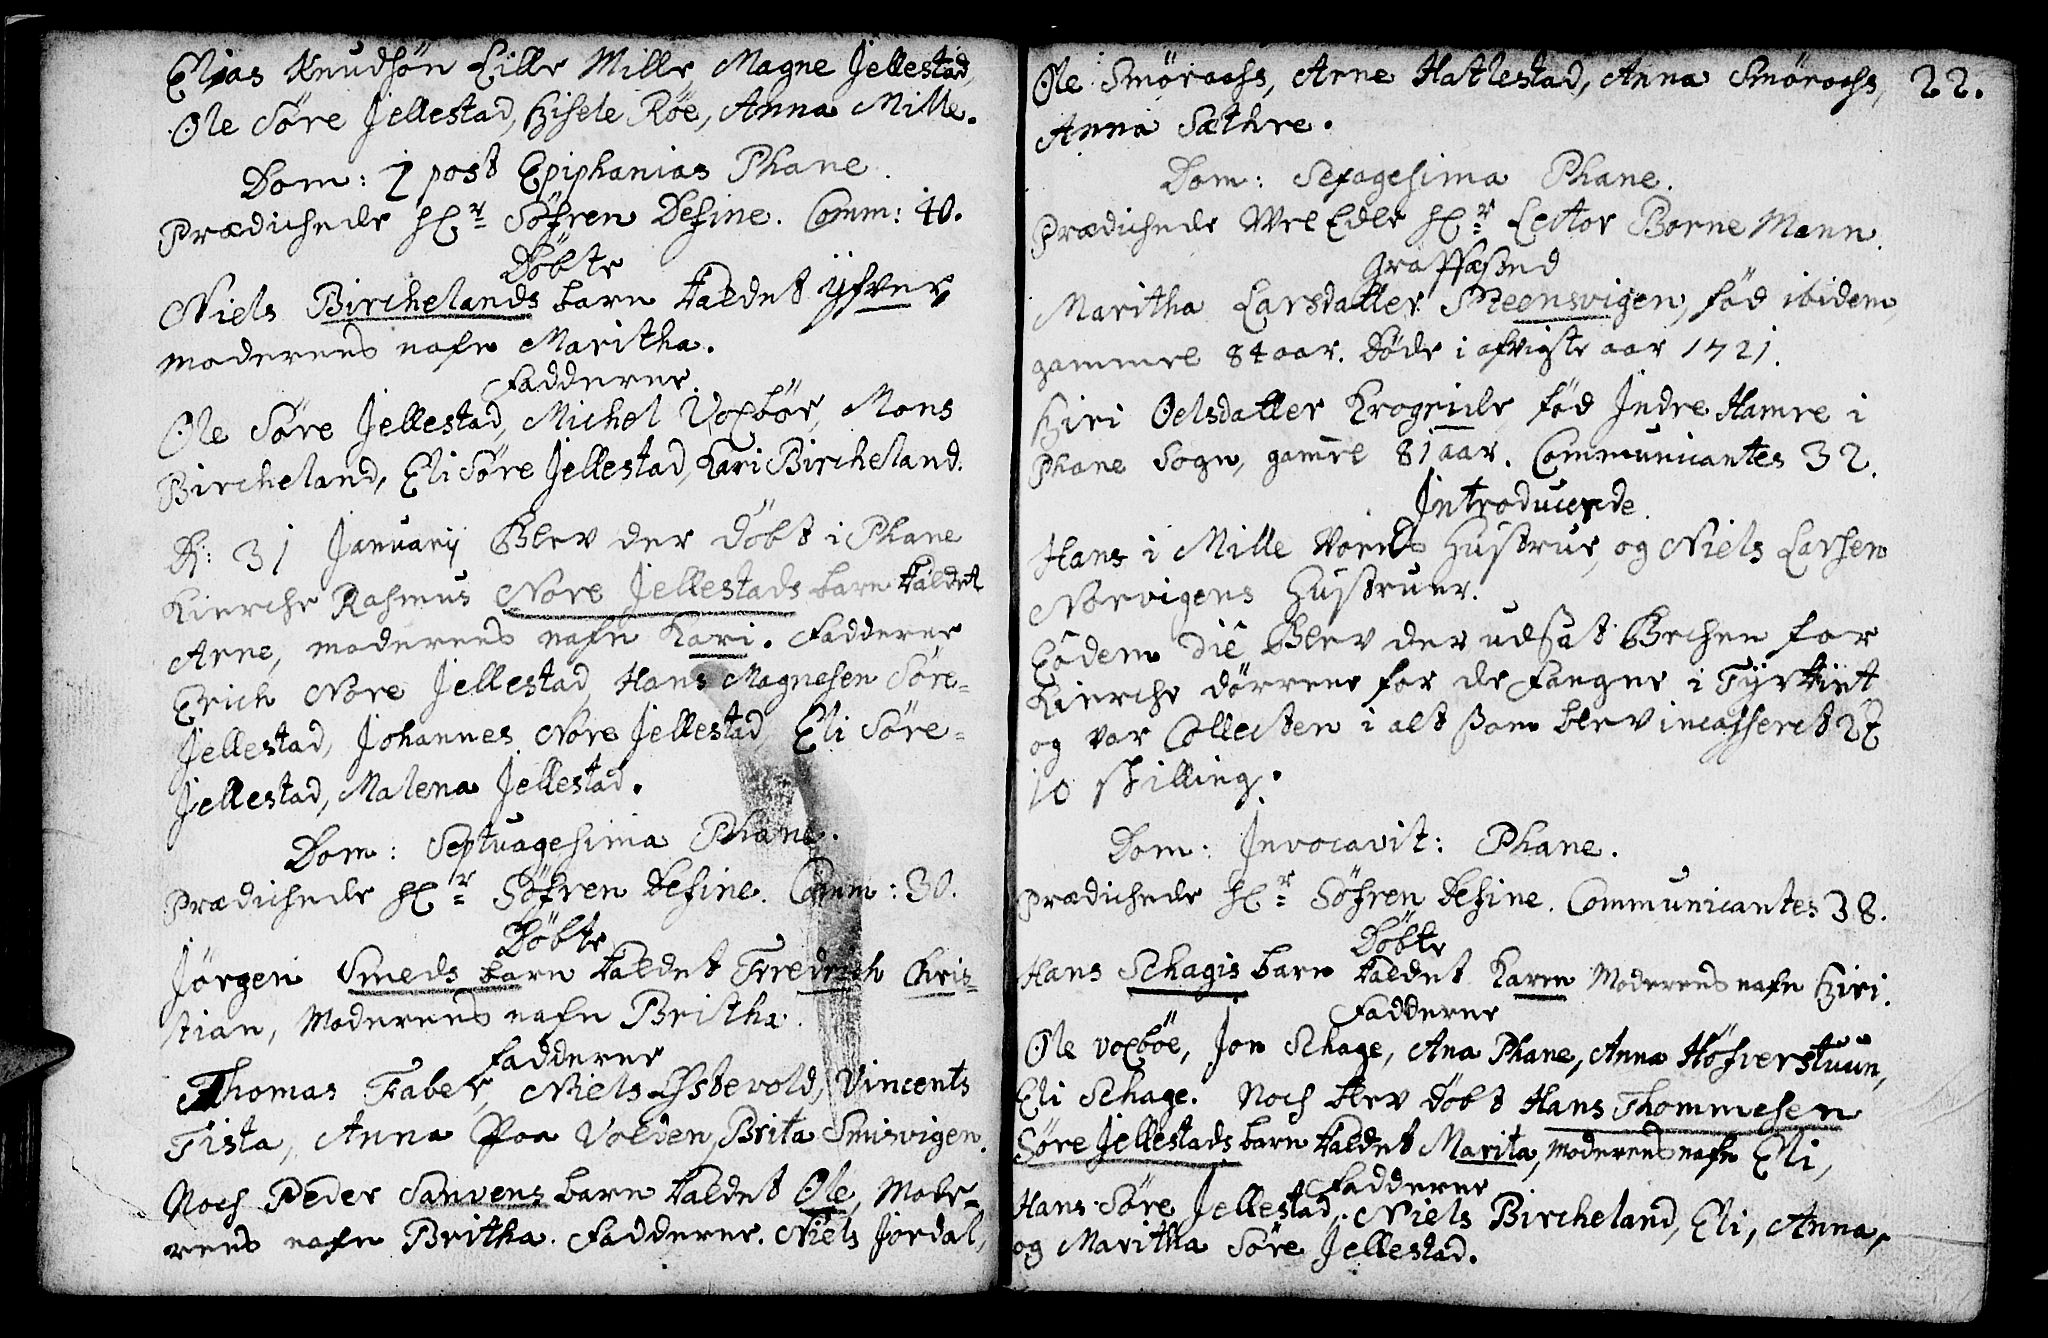 Elias Knudsøn Lille Mille, Magne Jellestad,
Ole Søre Jellestad, Gisele Røe, Anna Mille.
Dom: 2 post Epiphanias Phane.
Prædichede Hr: Söfren Desine. Comm: 40.
Döbte
Niels Birchelands barn kaldet Ifver,
moderens nafn Maritha.
Fadderne
Ole Søre Jellestad, Michel Voxbör, Mons
Bircheland, Eli Søre Jellestad, Kari Bircheland.
D: 31 Januarij Blev der döbt i Phane
Kierche Rasmus Nore Jellestads barn kaldet
Arne, moderens nafn Kari. Fadderne
Erich Nore Jellestad, Hans Magnesen Søre-
Jellestad, Johannes Nore Jellestad, Eli Søre-
Jellestad, Malena Jellestad.
Dom: Septuagesima Phane.
Prædichede Hr: Söfren Desine. Comm: 30.
Döbte
Jørgen Smeds barn kaldet Friedrich Chris-
tian, Moderens nafn Britha.
Fadderne
Thomas Faber, Niels Ystevold, Vincents
Fista, Anna Paa Volden, Brita Smisvigen.
Noch Peder Sanvens barn kaldet Ole, Mode-
rens nafn Britha. Fadderne. Niels Jordal,
Ole Smøraahs, Arne Hatlestad, Anna Smøraahs, 22.
Anna Sæthre.
Dom: Sexagesima Phane.
Prædichede Vel Edle Hr: Lector Borneman.
Graffæsted
Maritha Larsdatter Steensvigen, fød ibidem,
gammel 84 aar. Døde i afvigte aar 1721.
Giri Oelsdatter Krogeide, fød Indre Hamre i
Phane Sogn, gamel 81 aar. Communicantes 32.
Introducerde.
Hans i Mille Voens Hustrue, og Niels Larsen
Norvigens Hustruer.
Eodem die Blev der udsat Bechen for
Kierche dørrene for de fangne i Tyrkiet
og var Collecten i alt som blev incasseret 2
10 skilling.
Dom: Invocavit: Phane.
Prædichede Hr: Söfren Desine. Communicantes 38.
Döbte
Hans Schagis barn kaldet Karen Moderens nafn Giri.
Fadderne
Ole voxböe, Jon Schage, Ana Phane, Anna Höfverstuun,
Eli Schage. Noch blev döbt Hans Thommesen
Søre Jellestads barn kaldet Marita, moderens nafn Eli,
Fadderne
Hans Søre Jellestad, Niels Bircheland, Eli, Anna,
og Maritha Søre Jellestad.